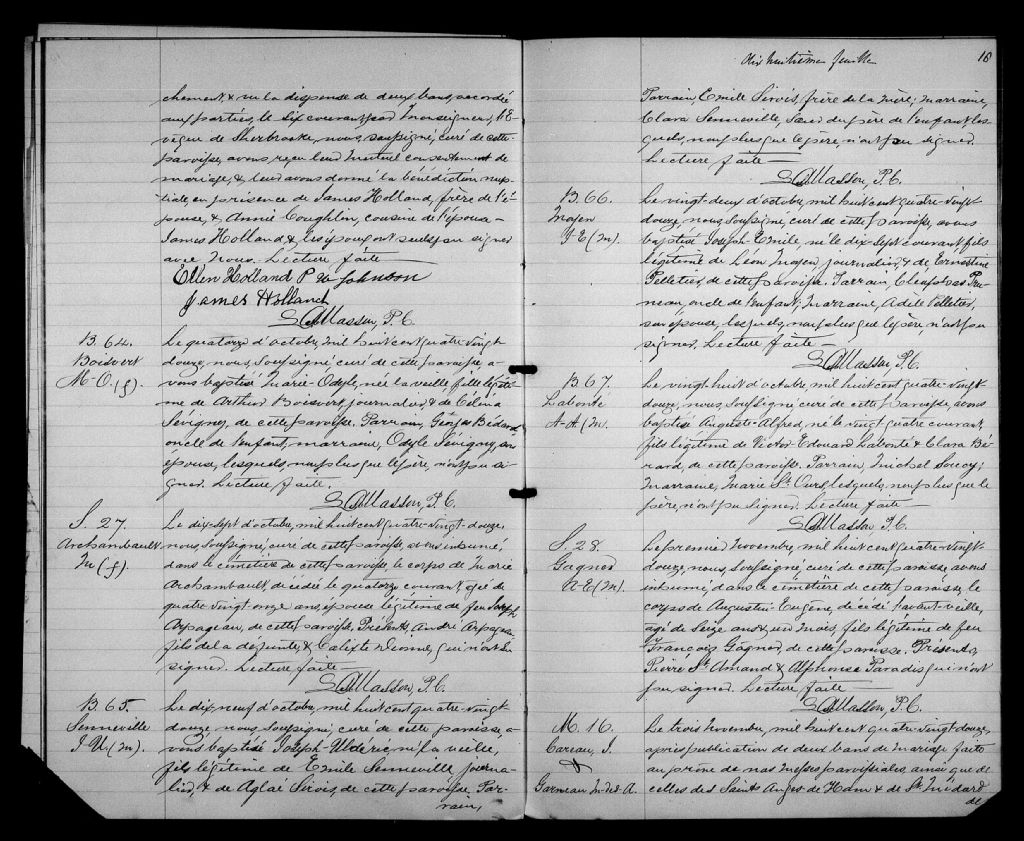 chement, & vu la dispense de deux bans, accordée
aux parties, le dix courant par Monseigneur, l'E-
vêque de Sherbrooke, nous, soussigné, curé de cette
paroisse, avons reçu leur mutuel consentement de
mariage, & leur avons donné la bénédiction nup-
tiale, en présence de James Holland, frère de l'é-
pouse, & Annie Coughlin, cousine de l'épouse
James Holland & les époux ont seuls pu signer
avec nous. Lecture faite
Ellen Holland P Johnson
James Holland
Masson, P.C.
B. 64.
Boisvert
M-O. (f).
Le quatorze d'octobre, mil huit cent quatre-vingt
douze, nous, soussigné, curé de cette paroisse, a-
vons baptisé Marie-Odyle, née la veille, fille légiti-
me de Arthur Boisvert, journalier, & de Célina
Sévigny, de cette paroisse. Parrain, Georges Bédard,
oncle de l'enfant, marraine, Odyle Sévigny, son
épouse, lesquels, non plus que le père, n'ont pu si-
gner. Lecture faite.
Masson, P.C.
S. 27.
Archambault
M (f).
Le dix-sept d'octobre, mil huit cent quatre-vingt-douze,
nous, soussigné, curé de cette paroisse, avons inhumé,
dans le cimetière de cette paroisse, le corps de Marie
Archambault, décédée le quatorze courant, âgée de
quatre-vingt onze ans, épouse légitime de feu Joseph
Arpajeau, de cette paroisse. Présents, André Arpajeau
fils de la défunte, & Calixte Dionne, qui n'ont su
signer. Lecture faite
Masson, P.C.
B. 65.
Senneville
J. U. (m).
Le dix-neuf d'octobre, mil huit cent quatre-vingt-
douze, nous, soussigné, curé de cette paroisse, a-
vons baptisé Joseph-Uldéric, né la veille,
fils légitime de Emile Senneville, journa-
lier, & de Aglaé Sirois, de cette paroisse. Par-
rain,
Dix huitième feuille
18
Parrain, Emile Sirois, frère de la mère; marraine,
Clara Senneville, sœur du père de l'enfant, les-
quels, non plus que le père, n'ont pu signer.
Lecture faite
Masson, P.C.
B. 66.
J-E (m).
Le vingt-deux d'octobre, mil huit cent quatre-vingt
douze, nous, soussigné, curé de cette paroisse, avons
baptisé Joseph-Emile, né le dix-sept courant, fils
légitime de Léon journalier, & de Ernestine
Pelletier, de cette paroisse. Parrain, Cléophas Pru-
neau, oncle de l'enfant; marraine, Adèle Pelletier,
son épouse, lesquels, non plus que le père, n'ont pu
signer. Lecture faite
Masson, P.C.
B. 67.
Labonté
A-A (m).
Le vingt huit d'octobre, mil huit cent quatre-vingt-
douze, nous, soussigné, curé de cette paroisse, avons
baptisé Auguste-Alfred, né le vingt quatre courant,
fils légitime de Victor Edouard Labonté & Clara Bé-
rard, de cette paroisse. Parrain, Michel Soucy;
marraine, Marie St. Ours, lesquels, non plus que le
père, n'ont pu signer. Lecture faite
Masson, P.C.
S. 28.
Gagner
A-E (m).
Le premier novembre, mil huit cent quatre-vingt-
douze, nous, soussigné, curé de cette paroisse, avons
inhumé, dans le cimétière de cette paroisse, le
corps de Augustin-Eugène, décédé l'avant-veille,
agé de seize ans & un mois, fils légitime de feu
François Gagner, de cette paroisse. Présents,
Pierre St. Amand & Alphonse Paradis qui n'ont
pu signer. Lecture faite
Masson, P.C.
M. 16.
Careau, J.
&
Garneau M-des-A.
Le trois novembre, mil huit cent quatre-vingt douze,
après publication de deux bans de mariage faite
au prône de nos messes paroissiales, ainsi que de
celles des Saints Anges de Ham & de St. Médard
de